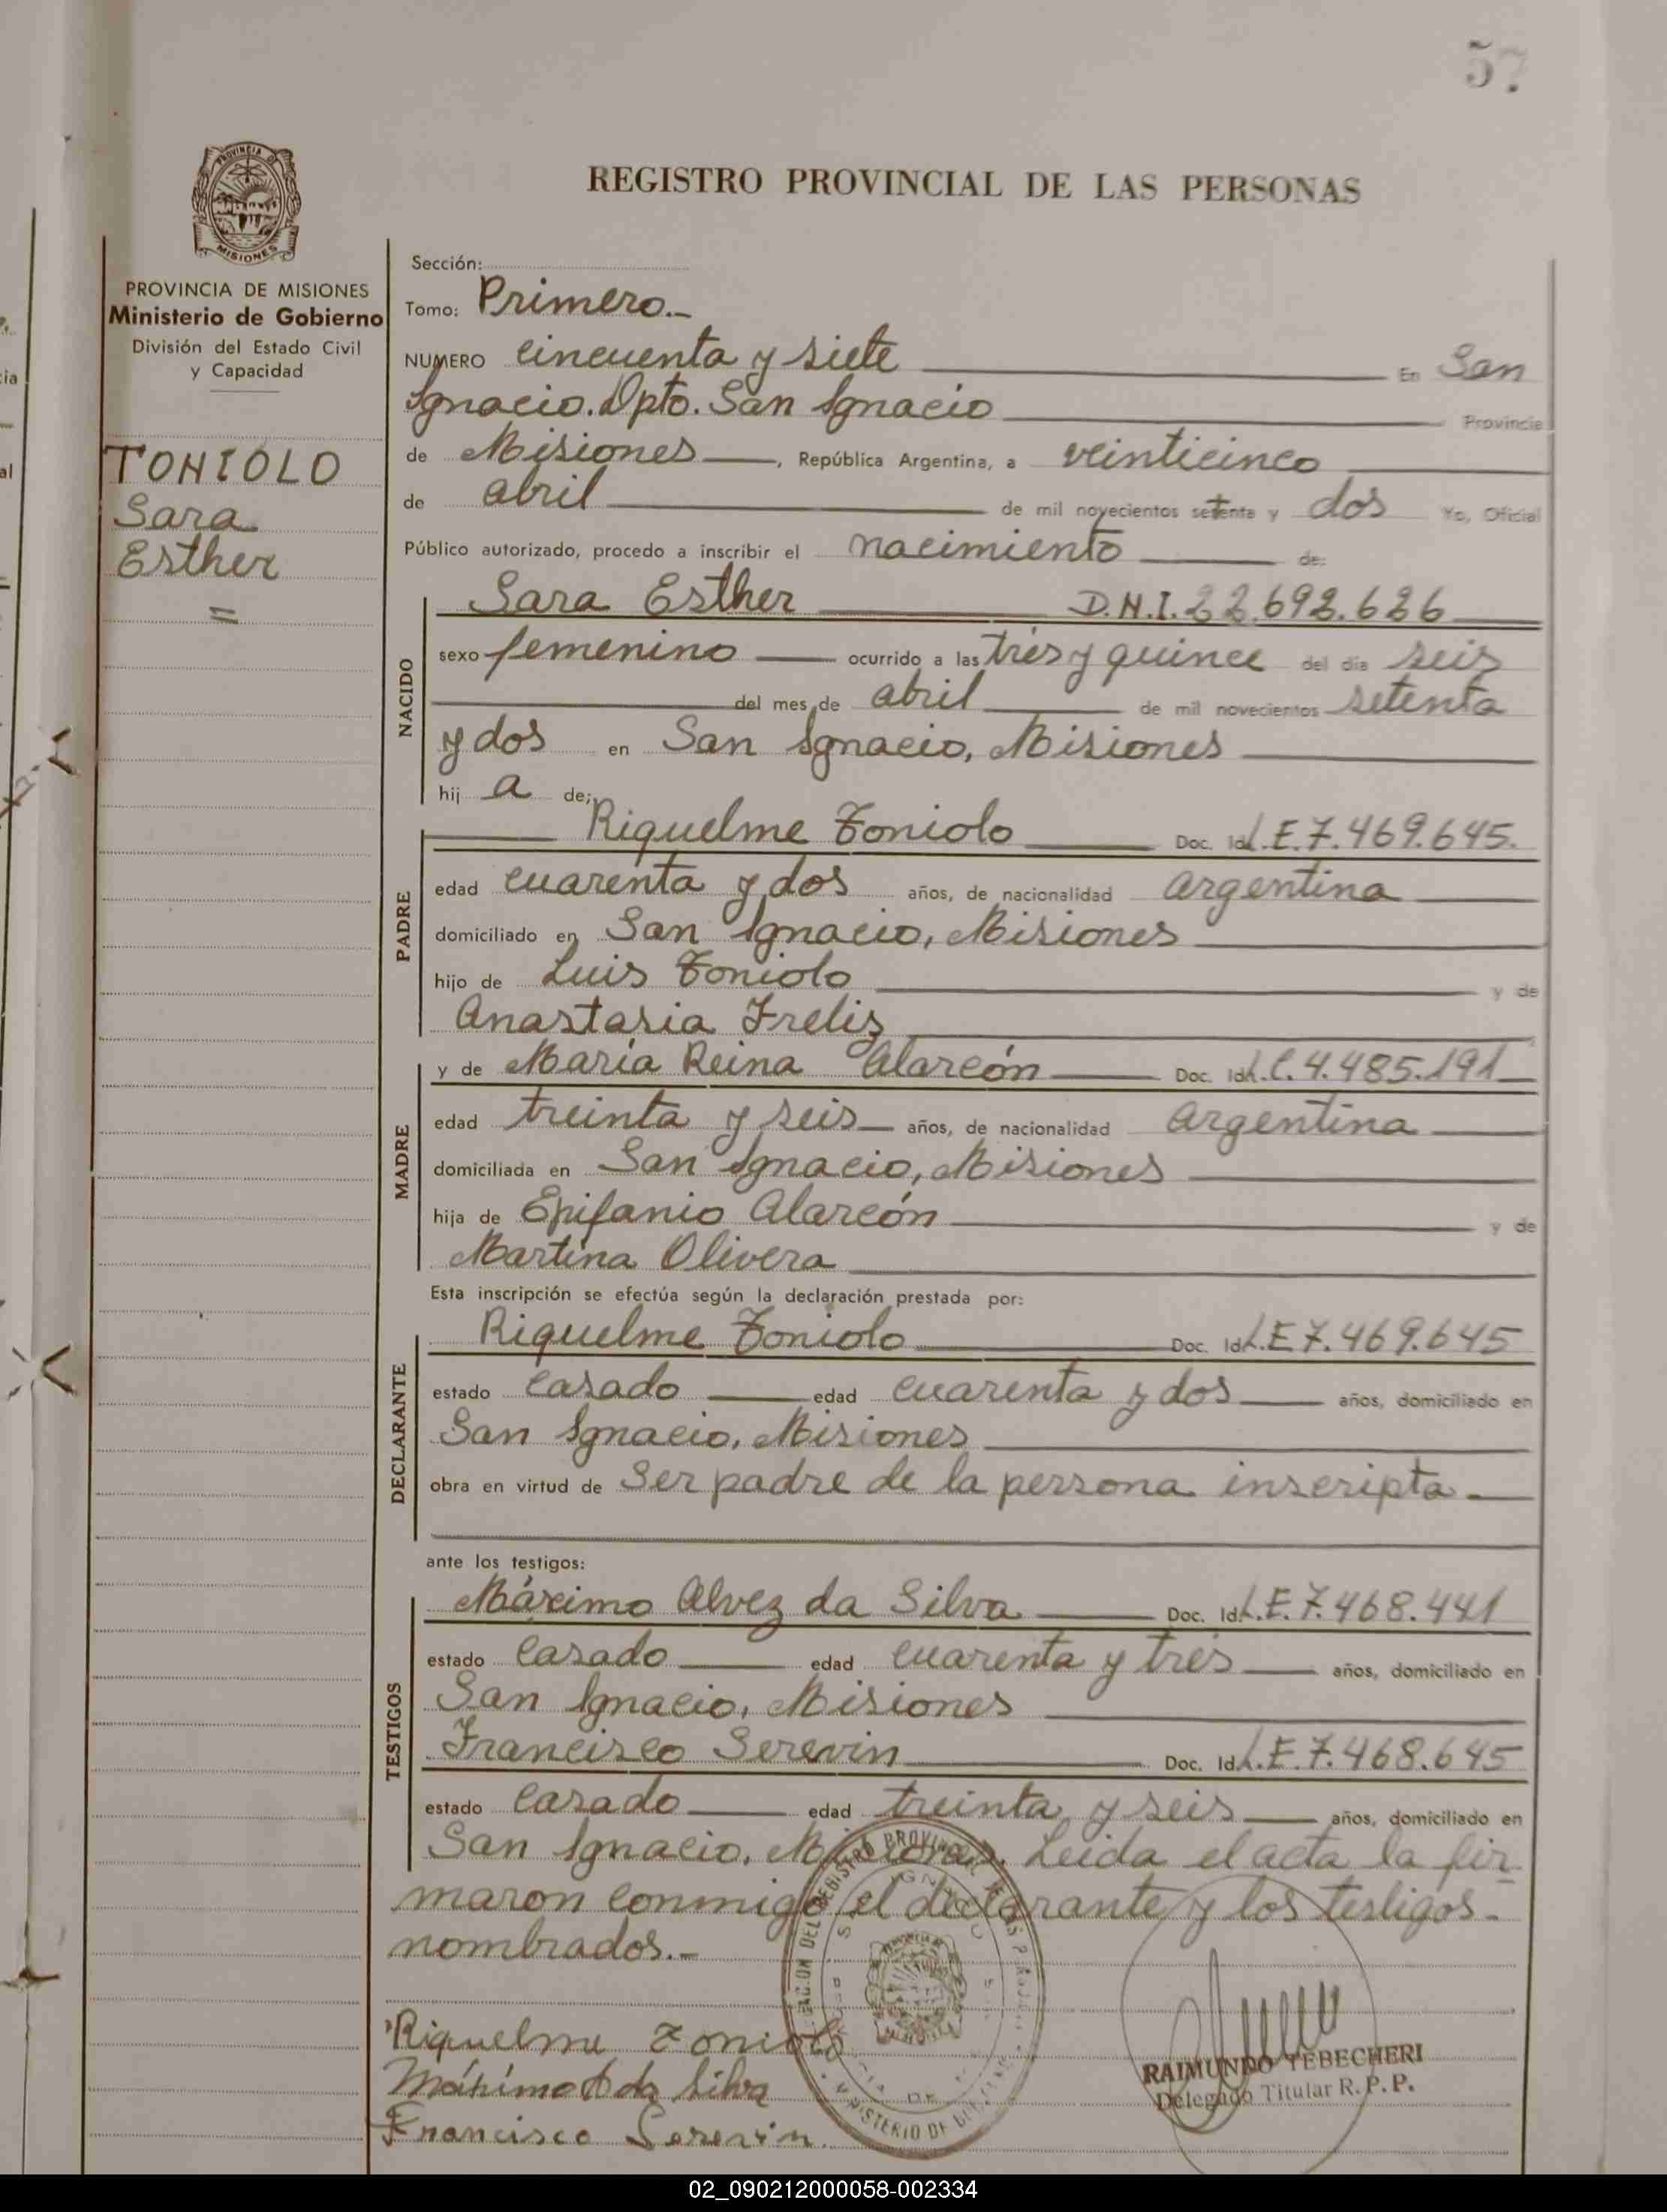 57
PROVINCIA DE
MISIONES
REGISTRO PROVINCIAL DE LAS PERSONAS
PROVINCIA DE MISIONES
Ministerio de Gobierno
División del Estado Civil
y Capacidad
TONIOLO
Sara
Esther
=
Sección:
Tomo: Primero.-
NUMERO cincuenta y siete En San
Ignacio. Dpto. San Ignacio Provincia
de Misiones, República Argentina, a veinticinco
de abril de mil novecientos setenta y dos Yo, Oficial
Público autorizado, procedo a inscribir el nacimiento de:
NACIDO
Sara Esther D.N.I. 22.692.626
sexo femenino ocurrido a las tres y quince del día seis
del mes de abril de mil novecientos setenta
y dos en San Ignacio, Misiones
hij a de;
PADRE
Riquelme Toniolo Doc. Id L.E.7.469.645.
edad cuarenta y dos años, de nacionalidad argentina
domiciliado en San Ignacio, Misiones
hijo de Luis Toniolo y de
Anastasia Freliz
MADRE
y de María Reina Alarcón Doc. Id L.C. 4.485.191
edad treinta y seis años, de nacionalidad argentina
domiciliada en San Ignacio, Misiones
hija de Epifanio Alarcón y de
Martina Olivera
Esta inscripción se efectúa según la declaración prestada por:
DECLARANTE
Riquelme Toniolo Doc. Id L.E 7.469.645
estado casado edad cuarenta y dos años, domiciliado en
San Ignacio, Misiones
obra en virtud de Ser padre de la persona inscripta
ante los testigos:
TESTIGOS
Máximo Alvez da Silva Doc. Id L.E. 7.468.441
estado casado edad cuarenta y tres años, domiciliado en
San Ignacio, Misiones
Francisco Serevin Doc. Id L.E.7.468.645
estado casado edad treinta y seis años, domiciliado en
San Ignacio, Misiones. Leida el acta la fir
maron conmigo el declarante y los testigos
nombrados.-
Riquelme Toniolo
Máximo A da Silva
Francisco Serevin.
RAIMUNDO TEBECHERI
Delegado Titular R.P.P.
02_090212000058-002334